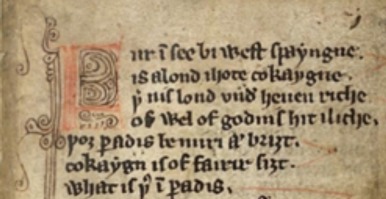 Fur ī see bi west spayngne.
is a lond ihote cokaygne.
þ nis lond vnd heuen riche
of wel of godnis hit iliche.
þoȝ ꝑadis be miri ⁊ briȝt.
cokaygn is of fairir siȝt.
what is þ ī ꝑadis.